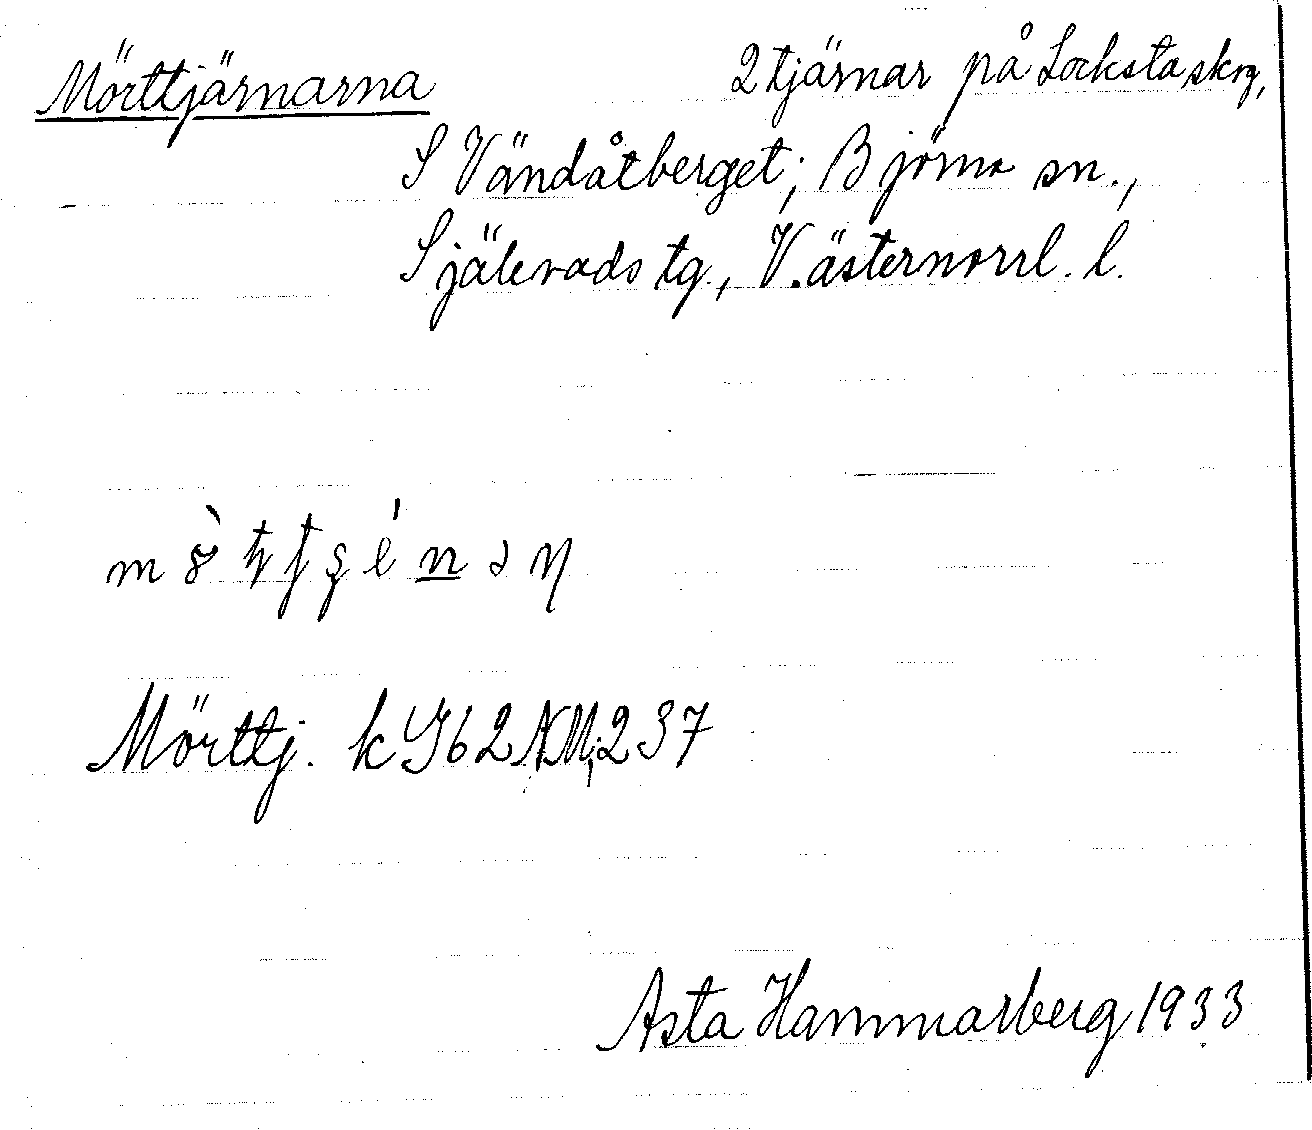 Mörttjärnarna 2 tjärnar på Locksta skog,
S Vändåtberget; Björna sn.,
Själevads tg., Västernorrl. l.
Mörttj. k G62 NM; 237
Asta Hammarberg 1933